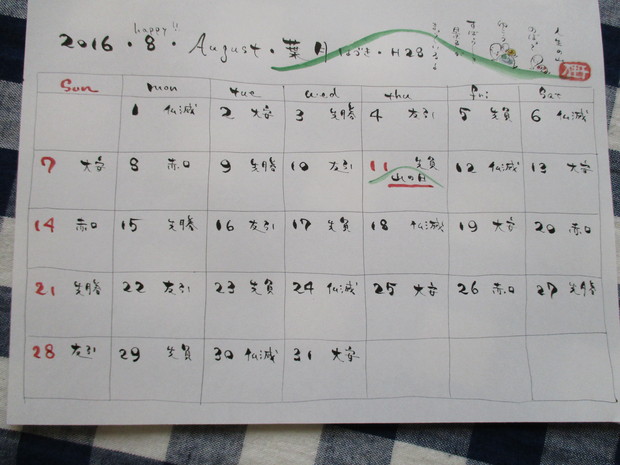 happy!!
2016・8・August・葉月 はづき・H28
Sun mon tue wed thu fri Sat
1 仏滅 2 大安 3 先勝 4 友引 5 先負 6 仏滅
7 大安 8 赤口 9 先勝 10 友引 11 先負 12 仏滅 13 大安
山の日
14 赤口 15 先勝 16 友引 17 先負 18 仏滅 19 大安 20 赤口
21 先勝 22 友引 23 先負 24 仏滅 25 大安 26 赤口 27 先勝
28 友引 29 先負 30 仏滅 31 大安